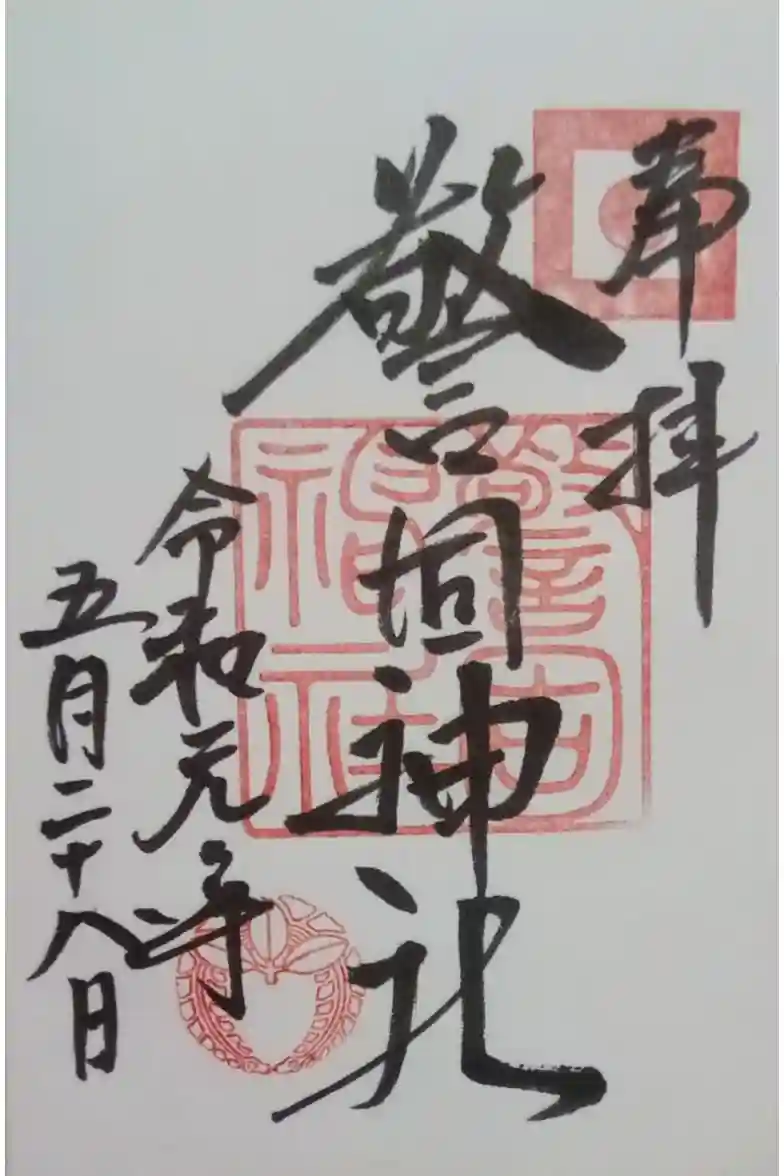 奉拝
警固神社
警固神社
令和元年
五月二十八日